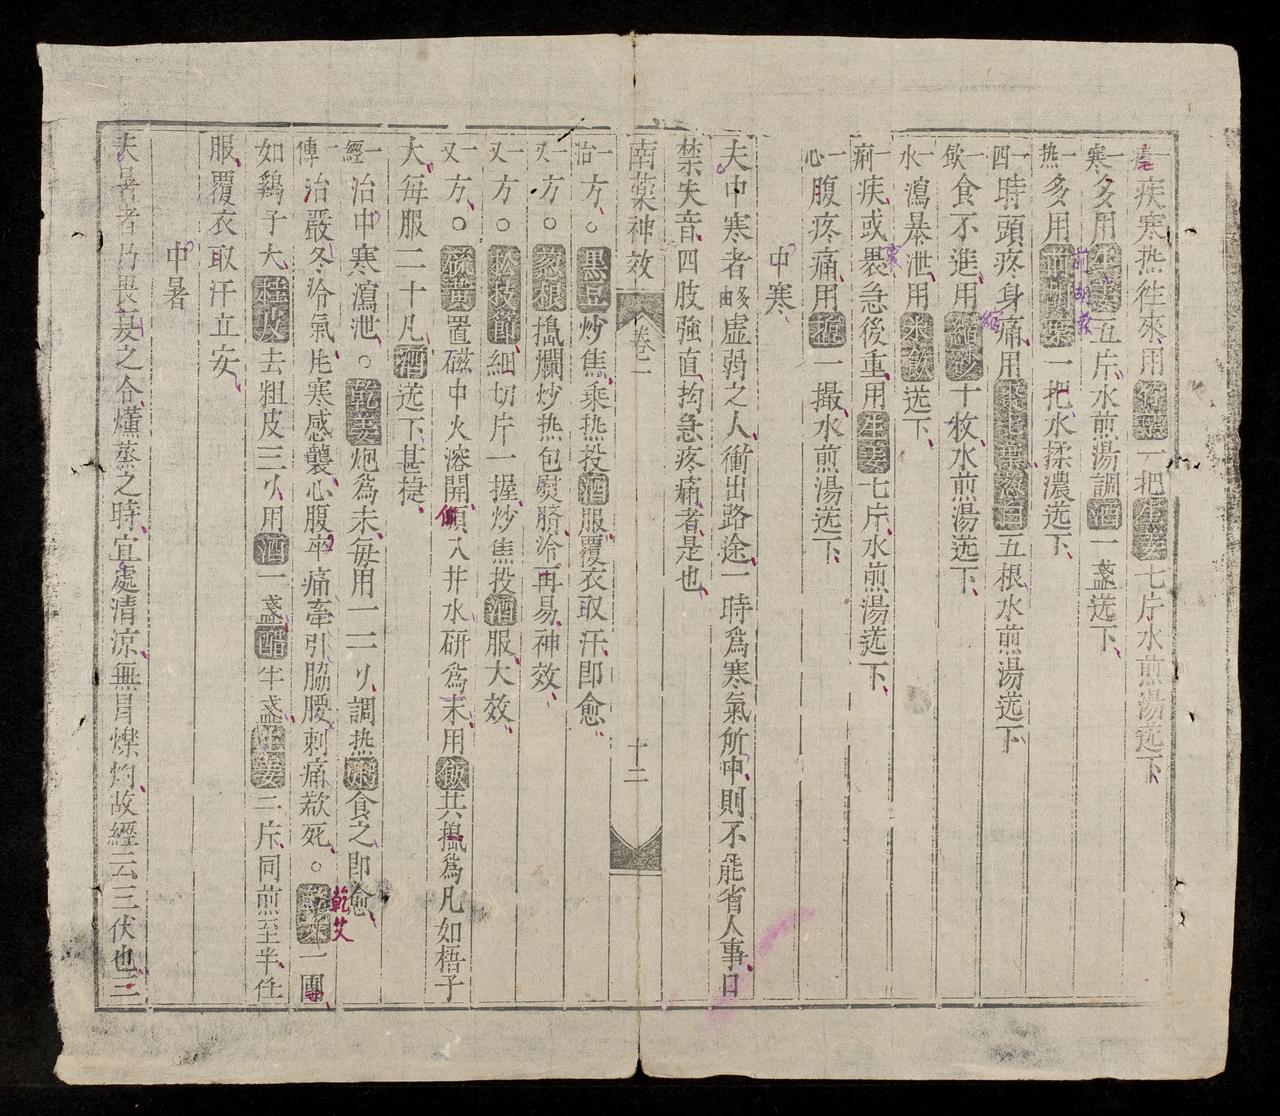 一瘧疾寒热徃來用苻葉一把生姜七斤水煎湯送下
一寒多用生姜五斤水煎湯調酒一盞送下
一热多用前胡葉一把水揉濃送下
前胡葉
一四時頭疼身痛用紫蘇葉葱白五根水煎湯送下
一飲食不進用縮砂十枚水煎湯送下
縮
一水瀉暴泄用米飲送下
一痢疾或裹急後重用生姜七斤水煎湯送下
裏
一心腹疼痛用塩一撮水煎湯送下
中寒
夫中寒者由多虛弱之人衝出路途一時爲寒氣所中則不能省人事口
禁失音四肢強直拘急疼痛者是也
南藥神效 卷二 十二
一治方○黒豆炒焦乘热投酒服覆衣取汗即愈
一又方○葱根搗爛炒热包熨臍冷再易神效
一又方○松枝節細切片一握炒焦投酒服大效
一又方○硫黃置磁中火溶開傾入井水硏爲末用飯共搗爲凡如梧子
傾
大每服二十凡酒送下甚捷
一經治中寒瀉泄○乾姜炮爲末每用一二刂調热粥食之即愈
一傳治嚴冬冷氣尾寒感襲心腹卒痛牽引脇腰刺痛欲死○乾艾一團
乾艾
如鷄子大桂皮去粗皮三刂用酒一盞醋半盞生姜三斤同煎至半任
服覆衣取汗立安
中暑
夫暑者乃長夏之令燻蒸之時宜處清涼無冒爍灼故經云三伏也三